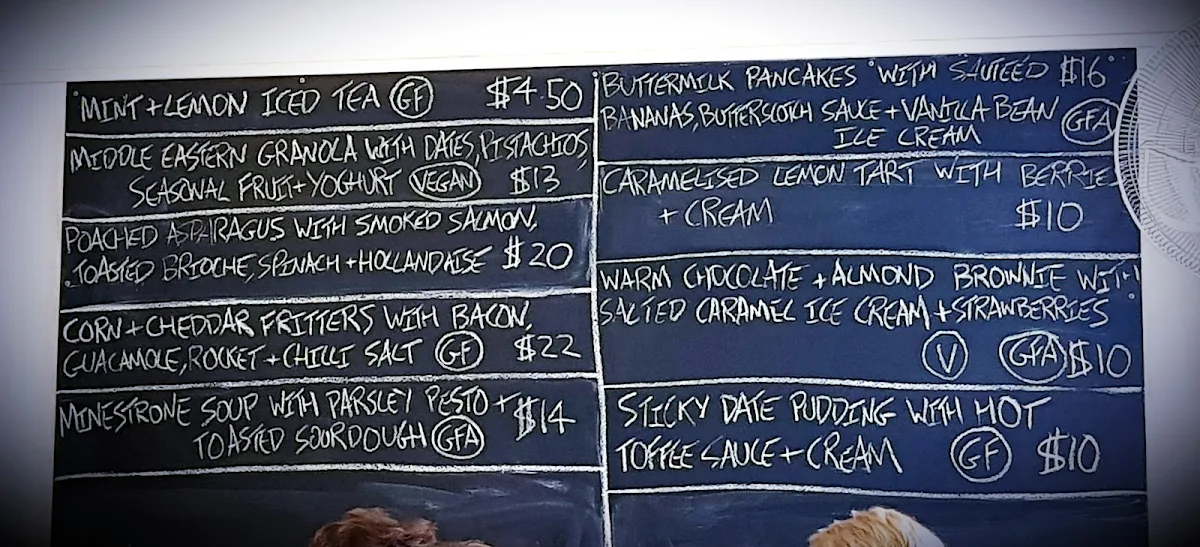 MINT + LEMON ICED TEA GF $4.50
MIDDLE EASTERN GRANOLA WITH DATES, PISTACHIOS,
SEASONAL FRUIT + YOGHURT VEGAN $13
POACHED ASPARAGUS WITH SMOKED SALMON,
TOASTED BRIOCHE, SPINACH + HOLLANDAISE $20
CORN + CHEDDAR FRITTERS WITH BACON,
GUACAMOLE, ROCKET + CHILLI SALT GF $22
MINESTRONE SOUP WITH PARSLEY PESTO + $14
TOASTED SOURDOUGH GFA
BUTTERMILK PANCAKES WITH SAUTEED $16
BANANAS, BUTTERSCOTCH SAUCE + VANILLA BEAN GFA
ICE CREAM
CARAMELISED LEMON TART WITH BERRIES
+ CREAM $10
WARM CHOCOLATE + ALMOND BROWNIE WITH
SALTED CARAMEL ICE CREAM + STRAWBERRIES
V GFA $10
STICKY DATE PUDDING WITH HOT
TOFFEE SAUCE + CREAM GF $10